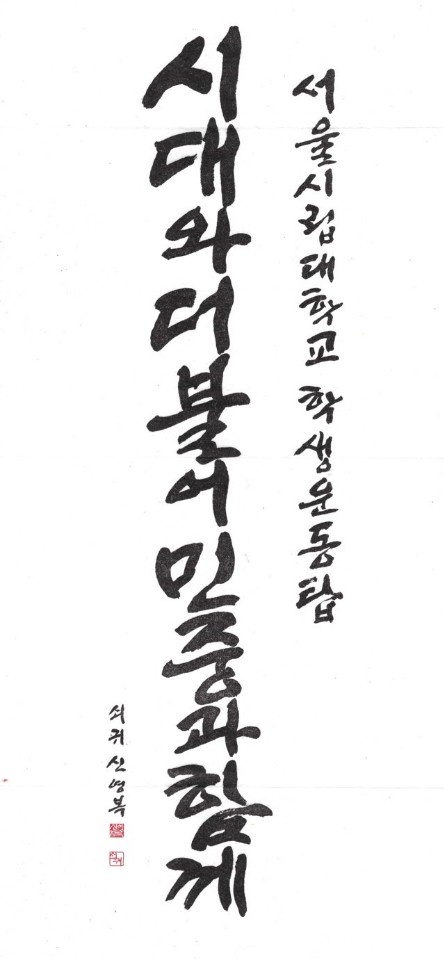 서울시립대학교 학생운동탑
시대와 더불어 민중과 함께
쇠귀 신영복